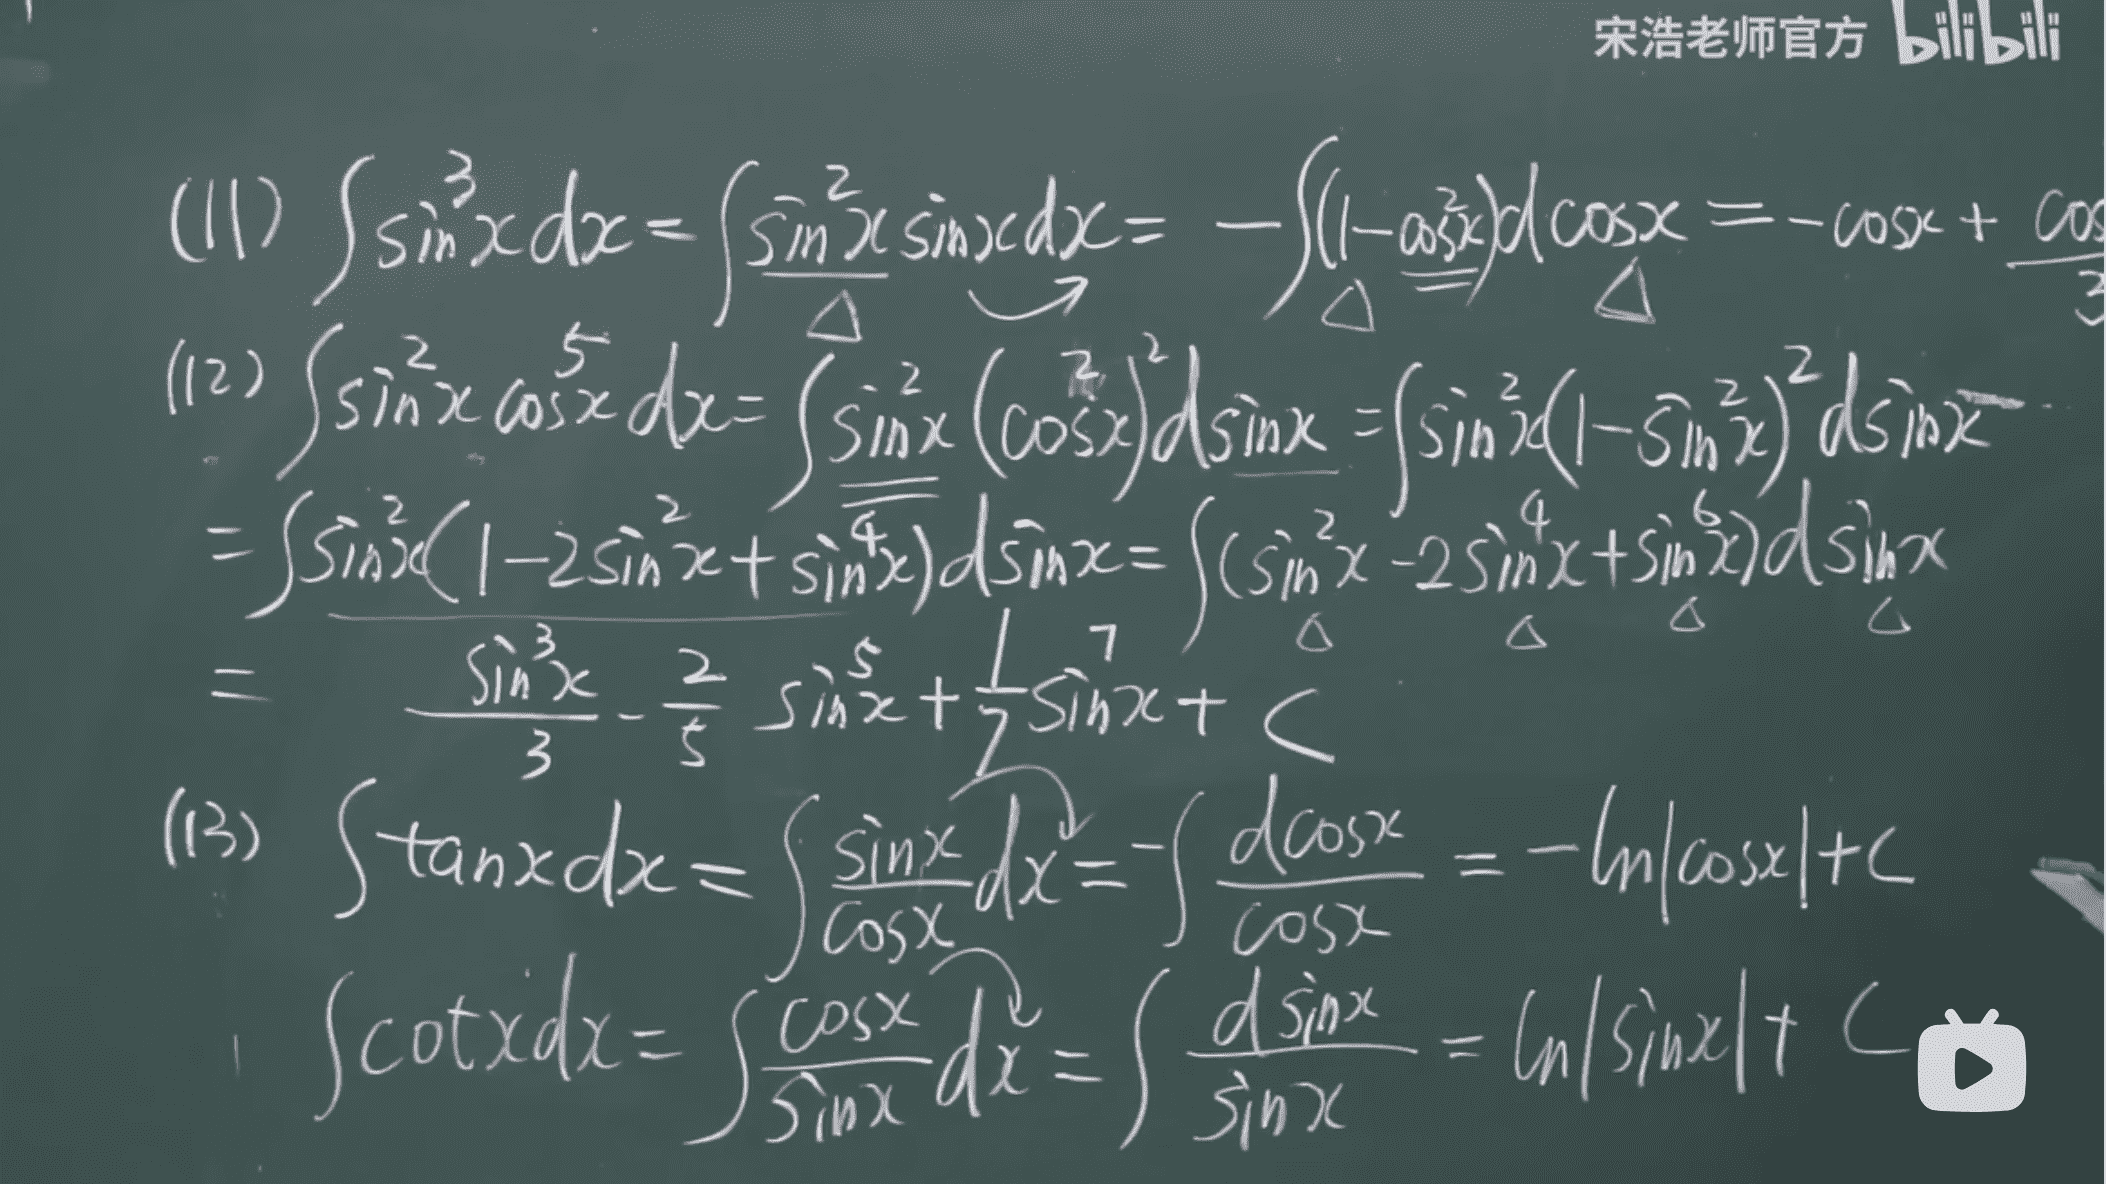 宋浩老师官方 bilibili
(11) ∫sin³x dx = ∫sin²x sinx dx = -∫(1-cos²x)d cosx = -cosx + cos/3
(12) ∫sin²x cos⁵x dx = ∫sin²x (cos²x)² d sinx = ∫sin²x(1-sin²x)² d sinx
= ∫sin²x(1-2sin²x+sin⁴x) d sinx = ∫(sin²x -2sin⁴x+sin⁶x) d sinx
= sin³x/3 - 2/5 sin⁵x + 1/7 sin⁷x + C
(13) ∫tanx dx = ∫sinx/cosx dx = -∫dcosx/cosx = -ln|cosx|+C
∫cotx dx = ∫cosx/sinx dx = ∫d sinx/sinx = ln|sinx|+ C